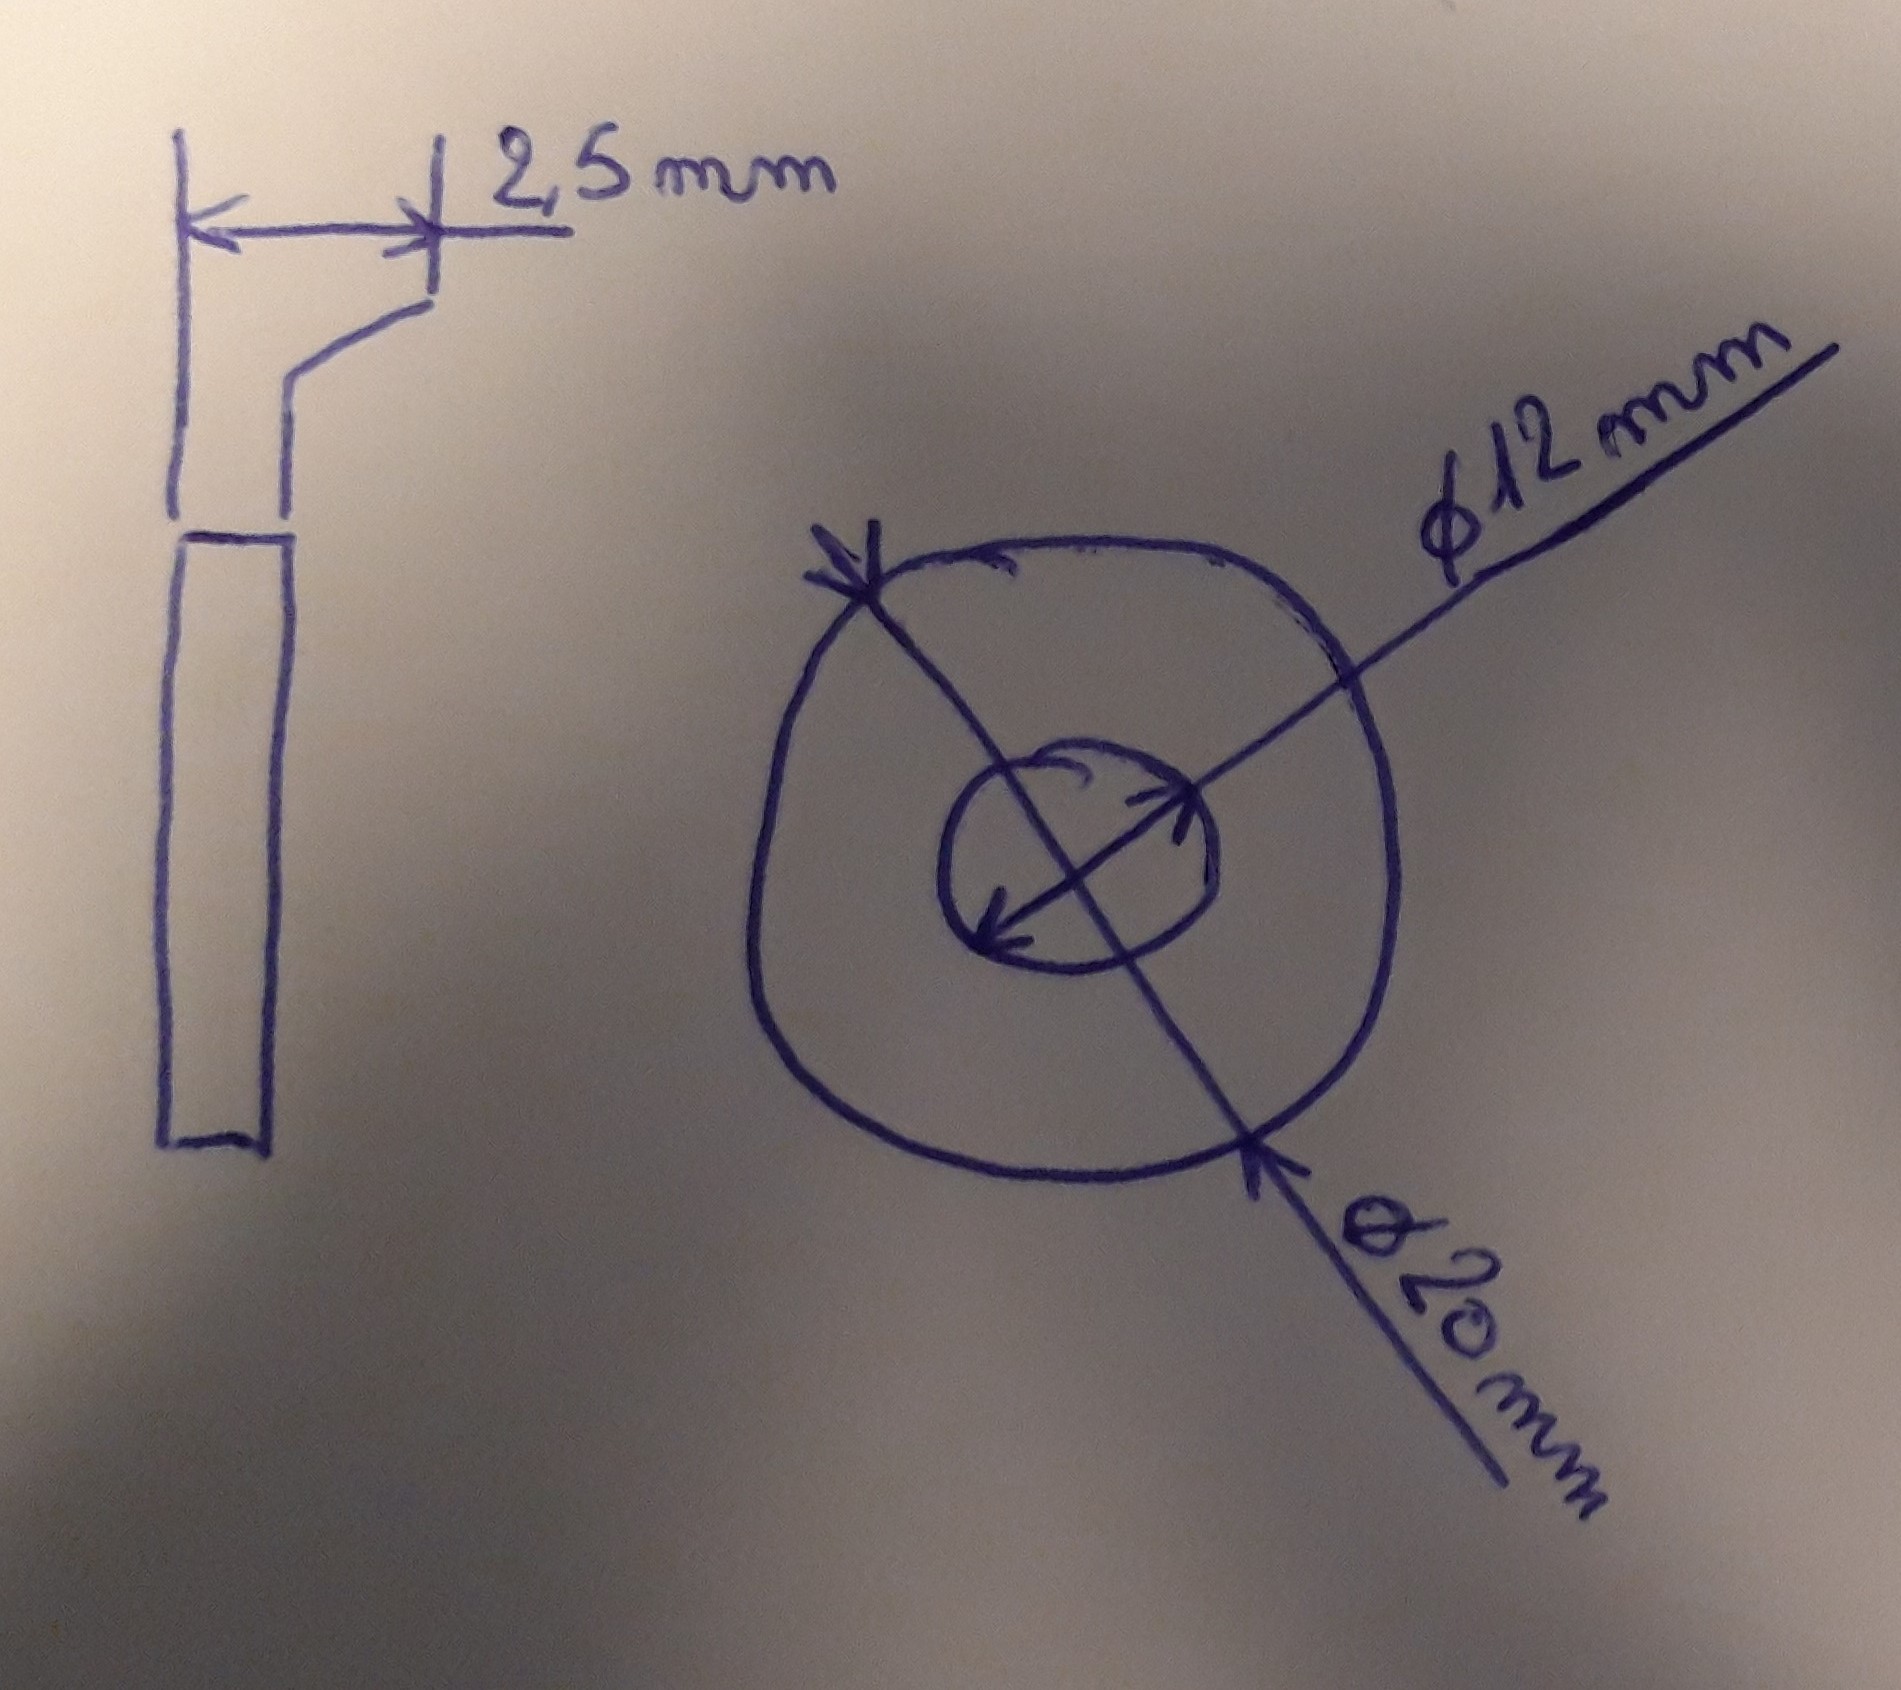 2,5 mm
ϕ12 mm
ϕ20 mm